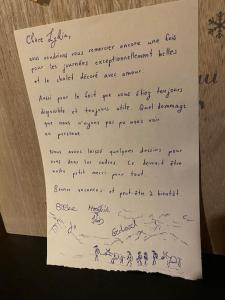 Chère Lydia,
nous voudrions vous remercier encore une fois
pour les journées exceptionnellement belles
et le chalet décoré avec amour.
Aussi pour le fait que vous étiez toujours
disponible et toujours utile. Quel dommage
que nous n'ayons pas pu nous voir
en personne.
Nous avons laissé quelques dessins pour
vous dans les cadres. Ce devrait être
notre petit merci pour tout.
Bonnes vacances et peut-être à bientôt
Gerhard